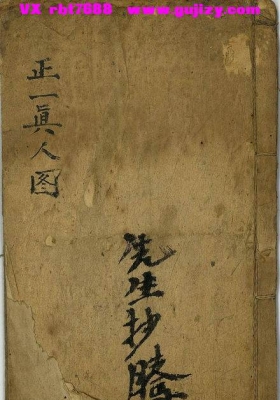 VX rbt7888 www.gujizy.com
正一真人图
先生抄謄